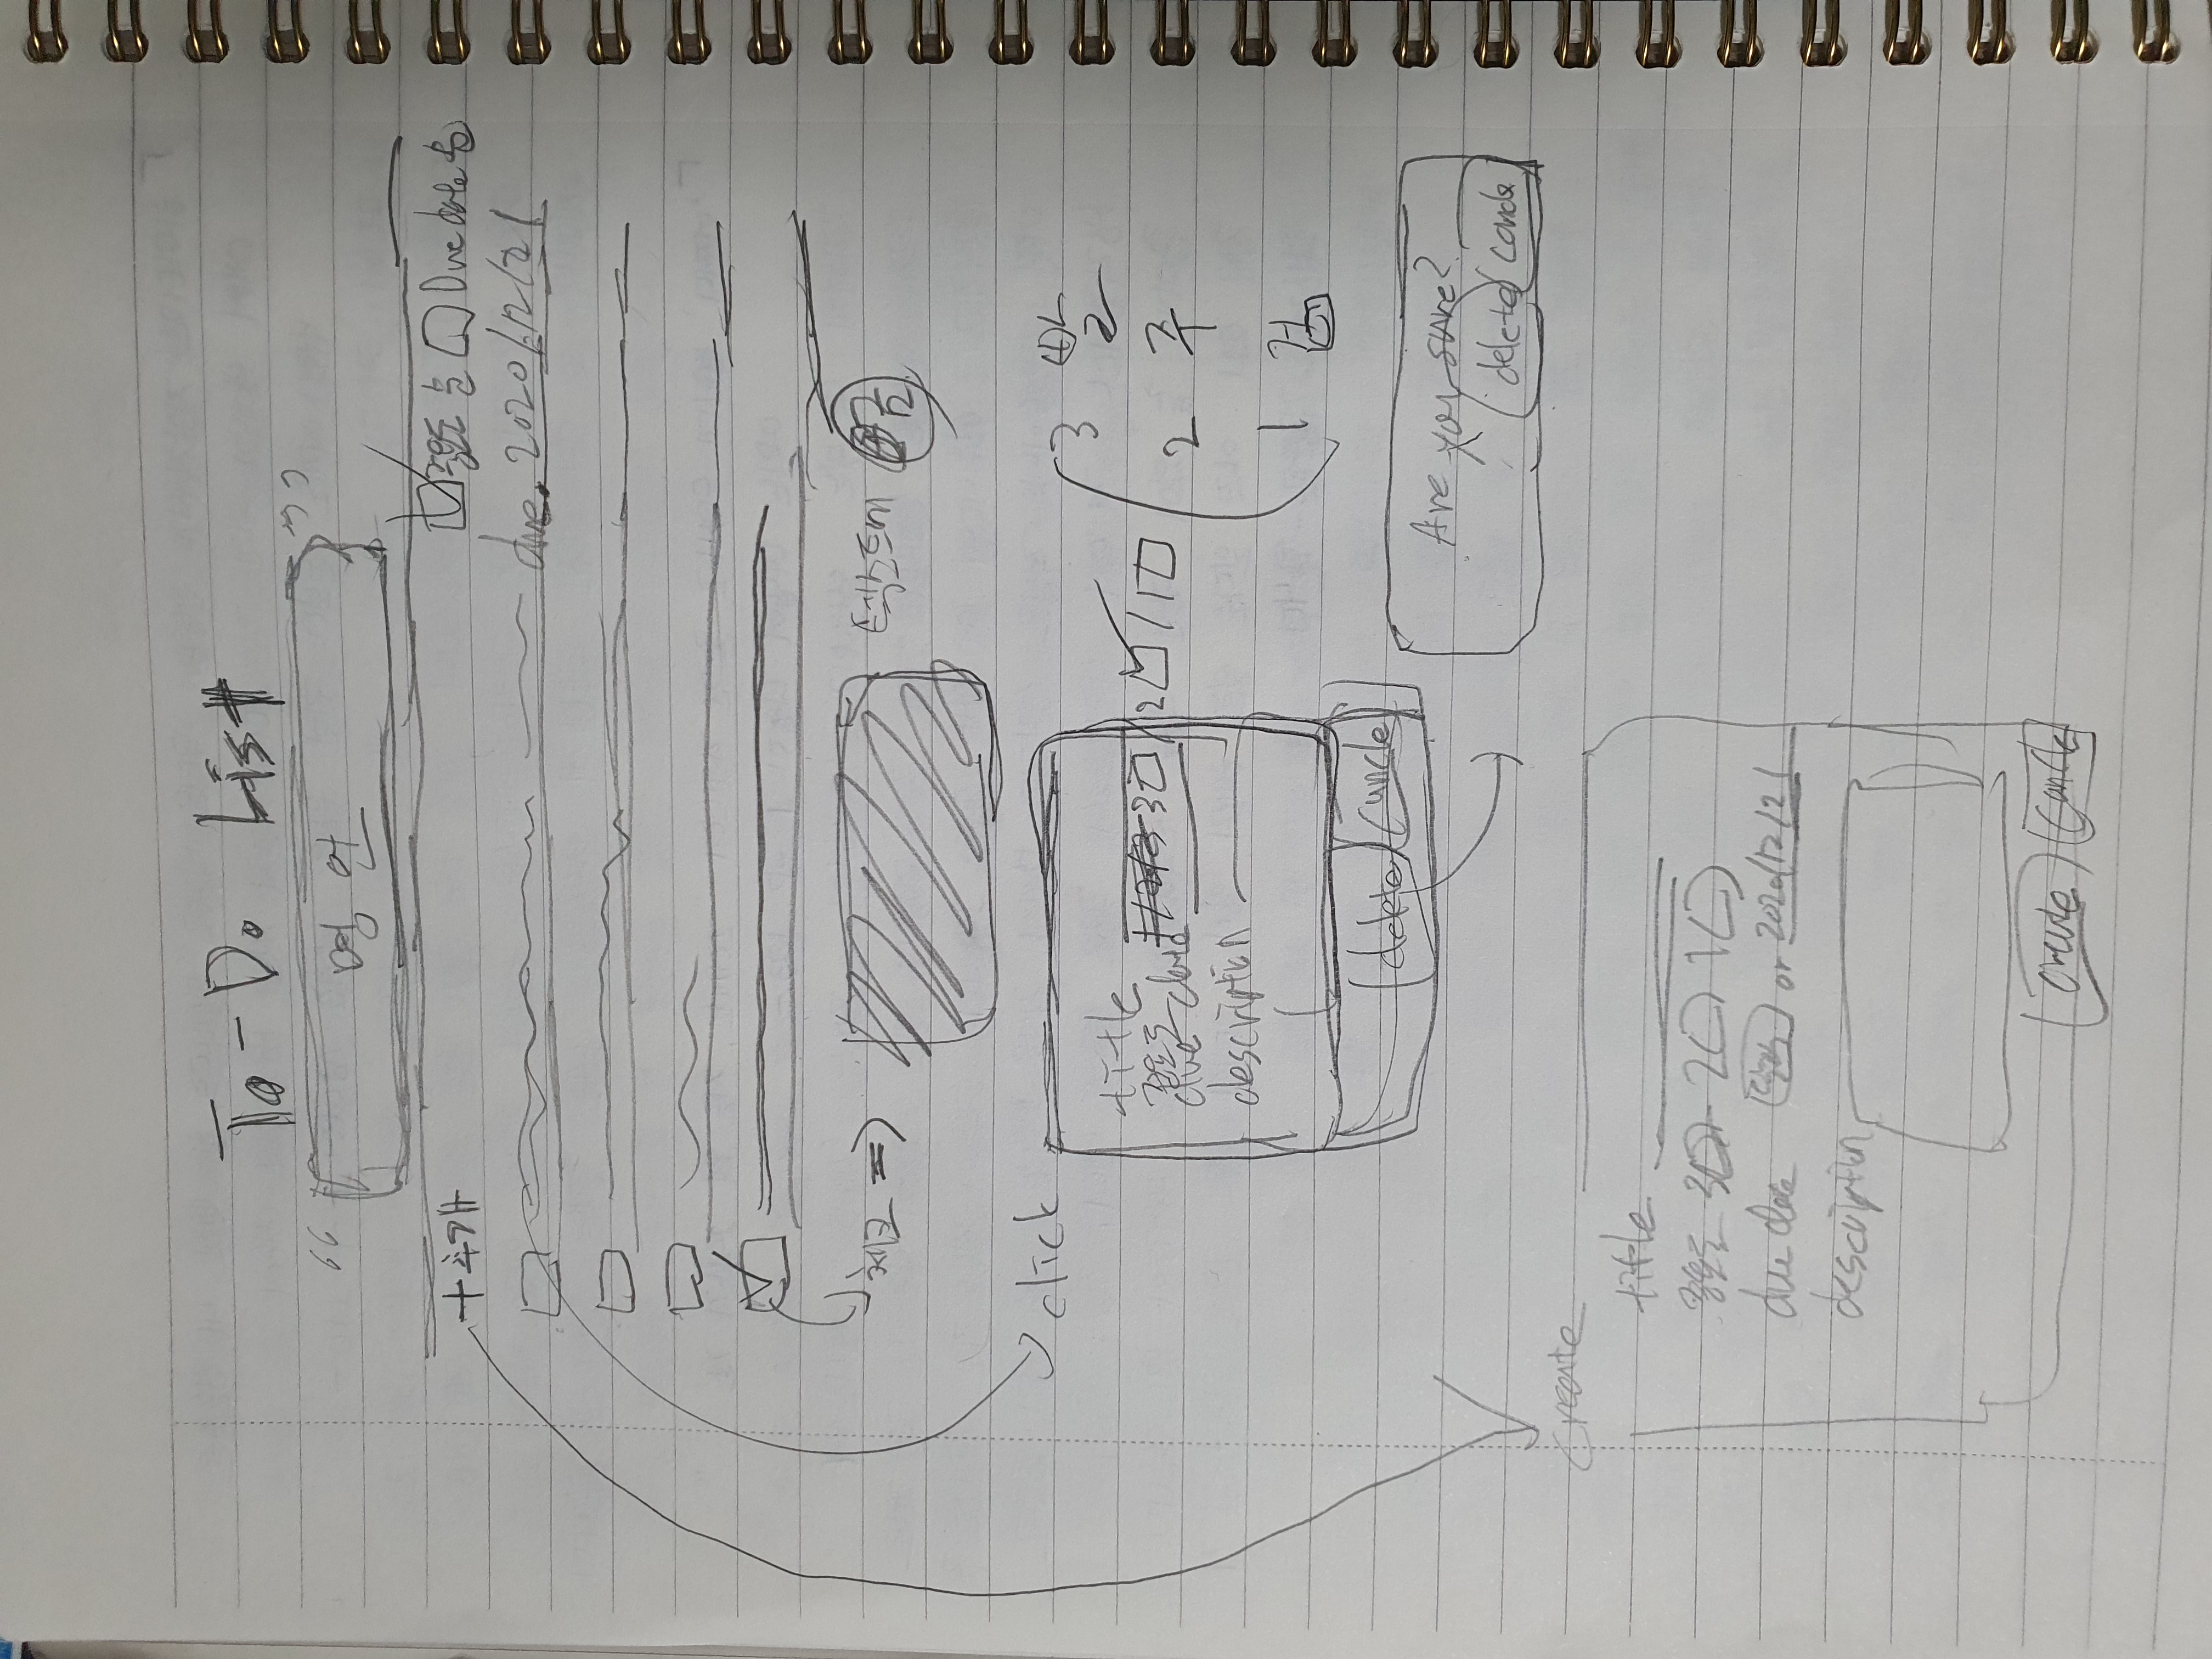 To-Do List
“ 명언 ”
+추가 중요도 순 Due date 순
due. 2020/12/21
체크 => 텍스트에 금
click
title
중요도 3 / 2 / 1
due date
description
delete cancle
3 빨
2 주
1 검
Are you sure?
delete cancle
Create
title
중요도 3 2 1
due date or 2020/12/21
description
create cancle